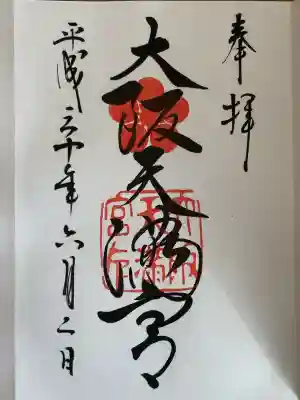 奉拝
大阪天満宮
平成三十年六月二日